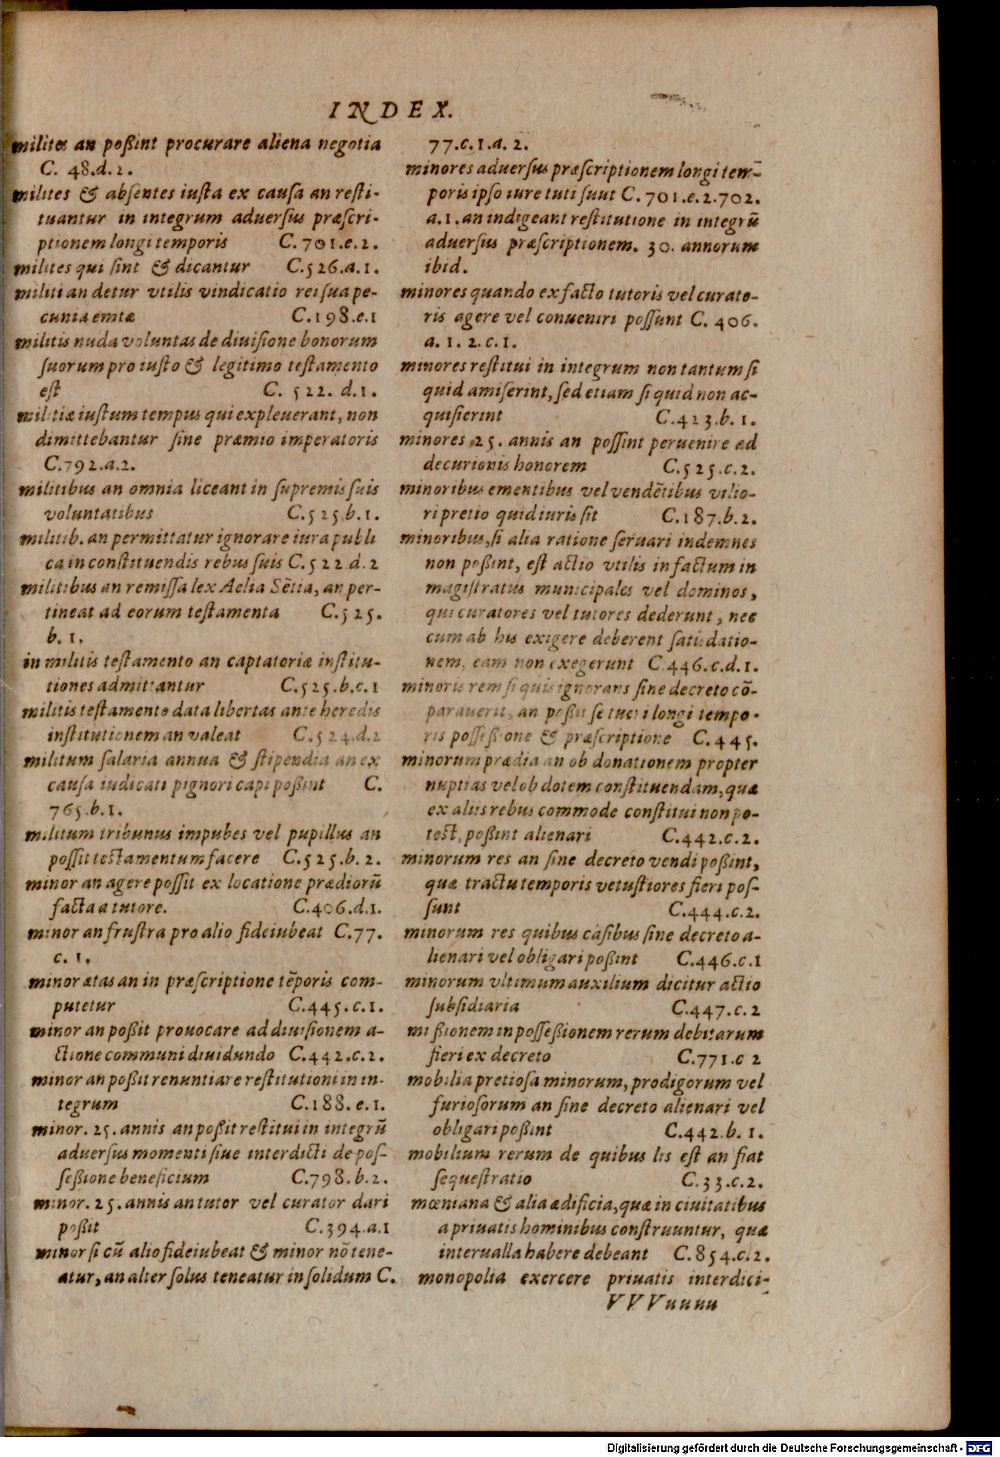 INDEX.
milites an poßint procurare aliena negotia
C. 48.d.2.
milites & absentes iusta ex causa an resti-
tuantur in integrum aduersus præscri-
ptionem longi temporis C.701.e.2.
milites qui sint & dicantur C.526.a.1.
militi an detur vtilis vindicatio rei sua pe-
cunia emtæ C.198.e.1
militis nuda voluntas de diuisione bonorum
suorum pro iusto & legitimo testamento
est C. 522. d.1.
militiæ iustum tempus qui expleuerant, non
dimittebantur sine præmio imperatoris
C.792.a.2.
militibus an omnia liceant in supremis suis
voluntatibus C.525.b.1.
militib. an permittatur ignorare iura publi
ca in constituendis rebus suis C.522.d.2
militibus an remissa lex Aelia Sētia, an per-
tineat ad eorum testamenta C.525.
b. 1.
in militis testamento an captatoriæ institu-
tiones admittantur C.525.b.c.1
militis testamento data libertas ante heredis
institutionem an valeat C.524.d.2
militum salaria annua & stipendia an ex
causa iudicati pignori capi poßint C.
765.b.1.
militum tribunus impubes vel pupillus an
possit testamentum facere C.525.b.2.
minor an agere possit ex locatione prædiorū
facta a tutore. C.406.d.1.
minor an frustra pro alio fideiubeat C.77.
c. 1.
minor ætas an in præscriptione tēporis com-
putetur C.445.c.1.
minor an poßit prouocare ad diuisionem a-
ctione communi diuidundo C.442.c.2.
minor an poßit renuntiare restitutioni in in-
tegrum C.188. e.1.
minor. 25. annis an poßit restitui in integrū
aduersus momenti siue interdicti de pos-
seßione beneficium C.798.b.2.
minor. 25. annis an tutor vel curator dari
poßit C.394.a.1
minor si cū alio fideiubeat & minor nō tene-
atur, an alter solus teneatur in solidum C.
77.c.1.d. 2.
minores aduersus præscriptionem longi tem-
poris ipso iure tuti sunt C.701.e.2.702.
a.1. an indigeant restitutione in integrū
aduersus præscriptionem. 30. annorum
ibid.
minores quando ex facto tutoris vel curato-
ris agere vel conueniri possunt C. 406.
a. 1. 2. c. 1.
minores restitui in integrum non tantum si
quid amiserint, sed etiam si quid non ac-
quisierint C.423.b. 1.
minores 25. annis an possint peruenire ad
decurionis honorem C.525.c.2.
minoribus ementibus vel vendētibus vilio-
ri pretio quid iuris sit C.187.b.2.
minoribus, si alia ratione seruari indemnes
non poßint, est actio vtilis in factum in
magistratus municipales vel dominos,
qui curatores vel tutores dederunt, nec
cum ab his exigere deberent satisdatio-
nem, eam non exegerunt C.446.c.d.1.
minoris rem si quis ignorans sine decreto cō-
parauerit, an poßit se tueri longi tempo-
ris posseßione & præscriptione C.445.
minorum prædia an ob donationem propter
nuptias vel ob dotem constituendam, quæ
ex aliis rebus commode constitui non po-
test, poßint alienari C.442.c.2.
minorum res an sine decreto vendi poßint,
quæ tractu temporis vetustiores fieri pos-
sunt C.444.c.2.
minorum res quibus casibus sine decreto a-
lienari vel obligari poßint C.446.c.1
minorum vltimum auxilium dicitur actio
subsidiaria C.447.c.2
mißionem in posseßionem rerum debitarum
fieri ex decreto C.771.c 2
mobilia pretiosa minorum, prodigorum vel
furiosorum an sine decreto alienari vel
obligari poßint C.442.b. 1.
mobilium rerum de quibus lis est an fiat
sequestratio C.33.c.2.
mœniana & alia ædificia, quæ in ciuitatibus
a priuatis hominibus construuntur, quæ
interualla habere debeant C.854.c.2.
monopolia exercere priuatis interdici-
VVVuuuu
Digitalisierung gefördert durch die Deutsche Forschungsgemeinschaft - DFG